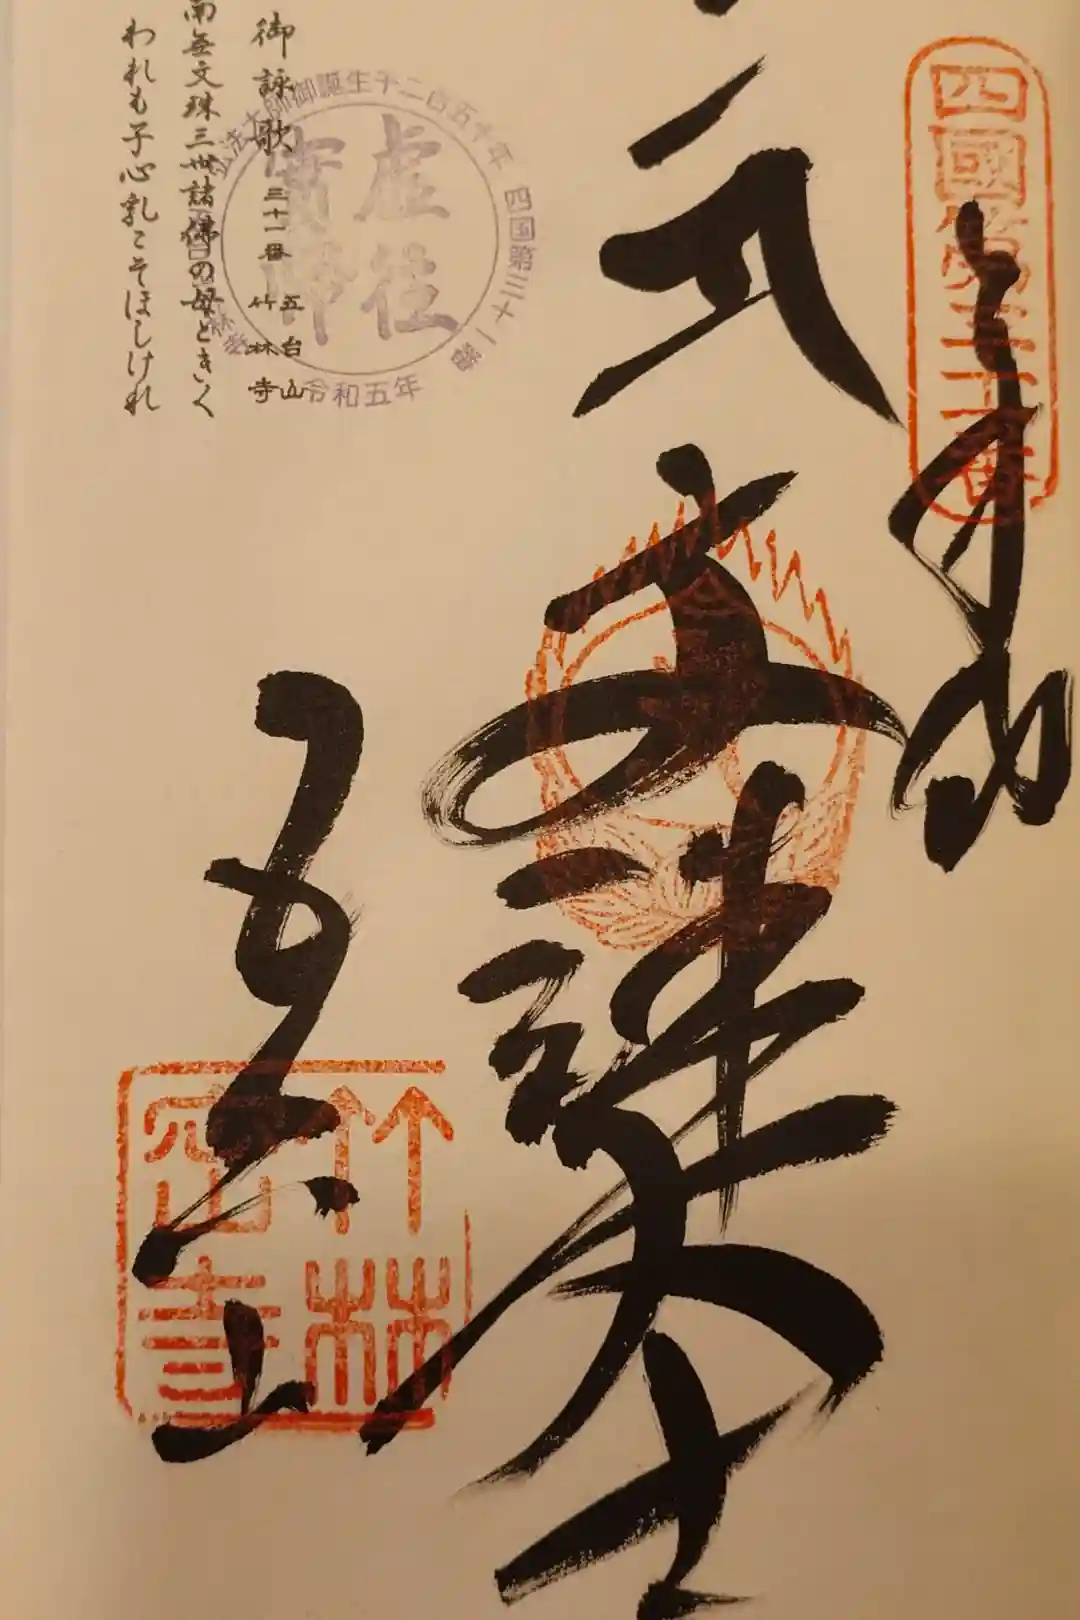 四國第三十一番
奉納
文殊大士
五台山
竹林
密寺
弘法大師御誕生千二百五十年 四国第三十一番
虚往
実帰
令和五年
御詠歌 三十一番 五台山
竹林寺
南無文珠三世諸佛の母ときく
われも子心乳こそほしけれ